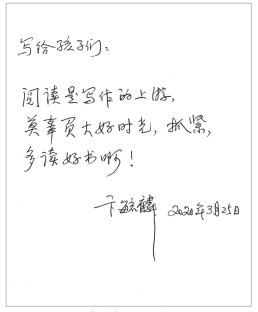 写给孩子们：
阅读是写作的上游，
莫辜负大好时光，抓紧，
多读好书啊！
卞毓麟 2020年3月25日